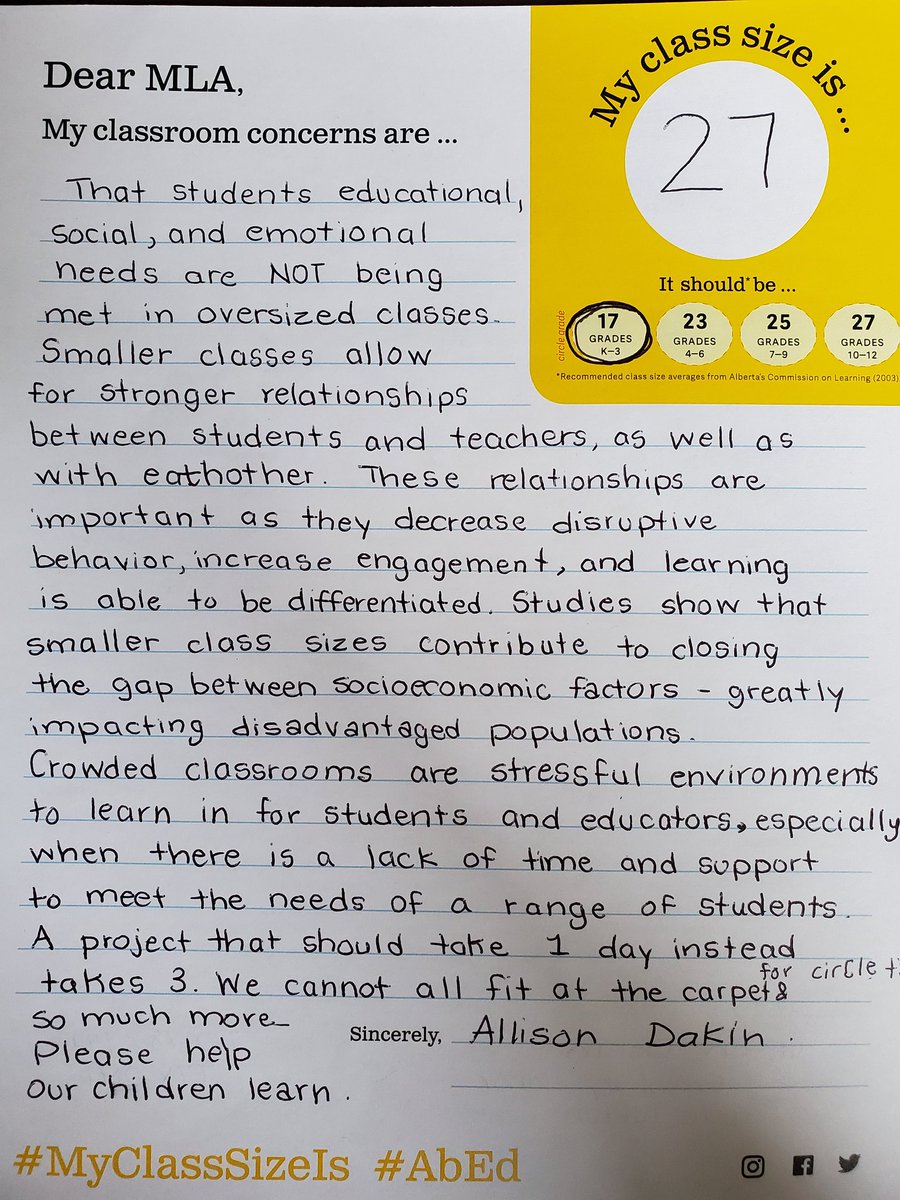 Dear MLA,
My classroom concerns are ...
My class size is ...
27
It should* be ...
circle grade
17 GRADES K–3
23 GRADES 4–6
25 GRADES 7–9
27 GRADES 10–12
*Recommended class size averages from Alberta's Commission on Learning (2003)
That students educational,
social, and emotional
needs are NOT being
met in oversized classes.
Smaller classes allow
for stronger relationships
between students and teachers, as well as
with eathother. These relationships are
important as they decrease disruptive
behavior, increase engagement, and learning
is able to be differentiated. Studies show that
smaller class sizes contribute to closing
the gap between socioeconomic factors - greatly
impacting disadvantaged populations.
Crowded classrooms are stressful environments
to learn in for students and educators, especially
when there is a lack of time and support
to meet the needs of a range of students.
A project that should take 1 day instead
takes 3. We cannot all fit at the carpet for circle &
so much more
Please help
our children learn.
Sincerely, Allison Dakin.
#MyClassSizeIs #AbEd